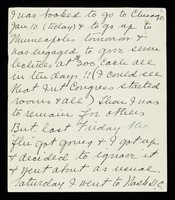 I was booked to go to Chicago
Jan 10 (today) & to go on to
Minneapolis tomorrow &
was engaged to give seven
lectures at 300 each all
in ten days!! (I could see
that Int Congress streted
rooms & all) Then I was
to remain for others
But, last Friday the
flu got going & I got up
& decided to ignore it
& went about as usual.
Saturday I went to Wash D.C.